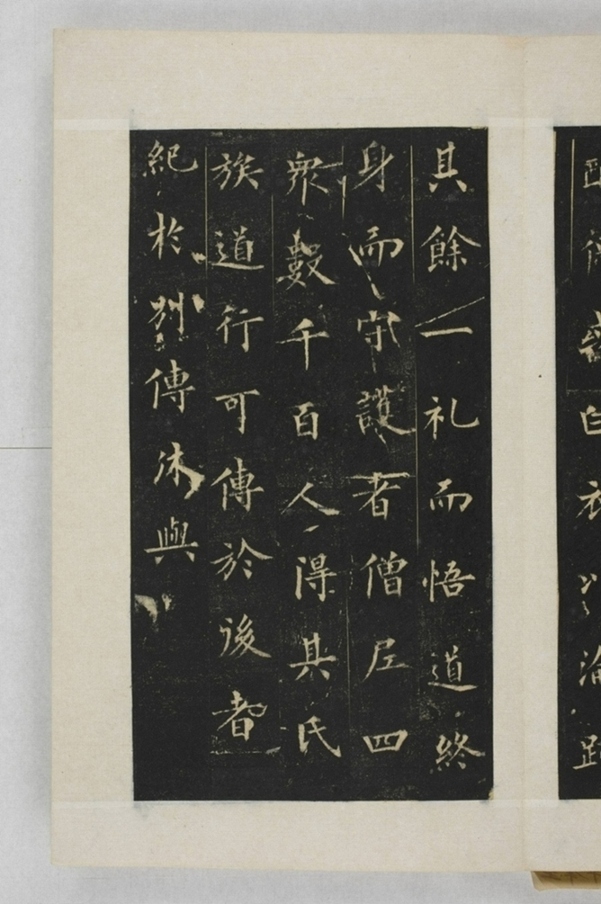 其餘一礼而悟道終
身而守護者僧尼四
衆數千百人得其氏
族道行可傳於後者
紀於別傳休與